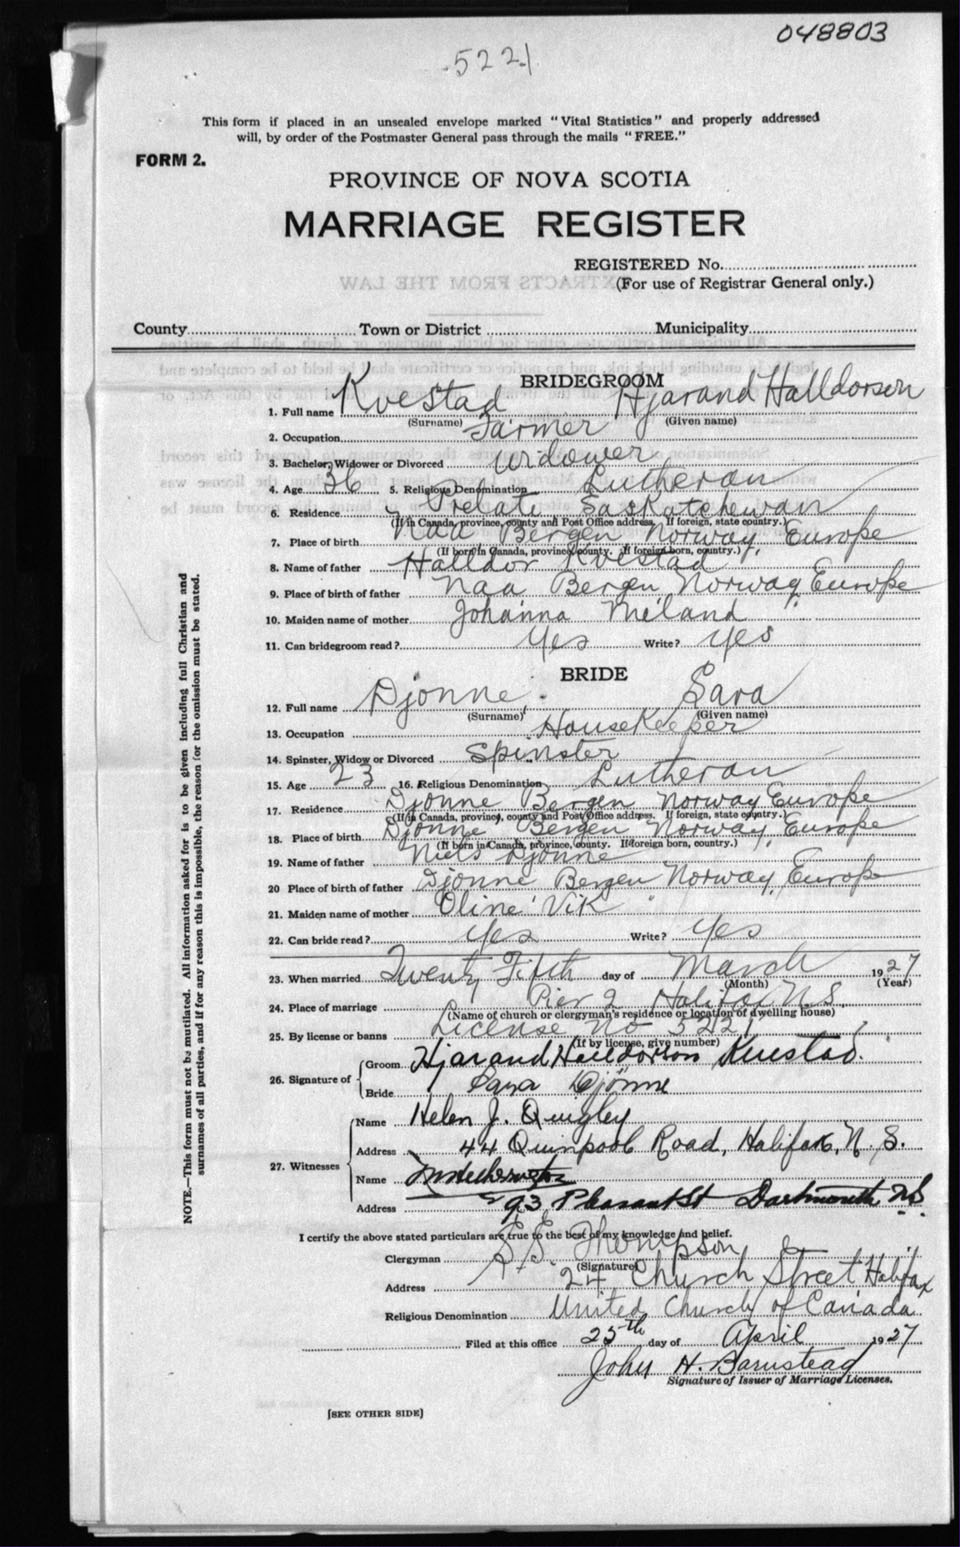 048803
5221
This form if placed in an unsealed envelope marked "Vital Statistics" and properly addressed
will, by order of the Postmaster General pass through the mails "FREE."
FORM 2.
PROVINCE OF NOVA SCOTIA
MARRIAGE REGISTER
REGISTERED No.
(For use of Registrar General only.)
EXTRACTS FROM THE LAW
County Town or District Municipality
BRIDEGROOM
1. Full name Kvestad Hjarand Halldorson
(Surname) (Given name)
2. Occupation Farmer
3. Bachelor, Widower or Divorced Widower
4. Age 36 5. Religious Denomination Lutheran
6. Residence Prelate Saskatchewan
(If in Canada, province, county and Post Office address. If foreign, state country.)
7. Place of birth Naa Bergen Norway, Europe
(If born in Canada, province, county. If foreign born, country.)
8. Name of father Halldor Kvestad
9. Place of birth of father Naa Bergen Norway Europe
10. Maiden name of mother Johanna Meland
11. Can bridegroom read? Yes Write? Yes
BRIDE
12. Full name Djonne Sara
(Surname) (Given name)
13. Occupation HouseKeeper
14. Spinster, Widow or Divorced Spinster
15. Age 23 16. Religious Denomination Lutheran
17. Residence Djonne Bergen Norway Europe
(If in Canada, province, county and Post Office address. If foreign, state country.)
18. Place of birth Djonne Bergen Norway, Europe
(If born in Canada, province, county. If foreign born, country.)
19. Name of father Niels Djonne
20 Place of birth of father Djonne Bergen Norway, Europe
21. Maiden name of mother Oline Vik
22. Can bride read? Yes Write? Yes
23. When married Twenty Fifth day of March 1927
(Month) (Year)
24. Place of marriage Pier 2 Halifax N.S.
(Name of church or clergyman's residence or location of dwelling house)
25. By license or banns License No 5221
(If by license, give number)
26. Signature of Groom Hjarand Halldorson Kvestad.
Bride Sara Djønne
27. Witnesses Name Helen J. Quigley
Address 44 Quinpool Road, Halifax, N. S.
Name
Address 93 Pleasant St Dartmouth, N.S.
I certify the above stated particulars are true to the best of my knowledge and belief.
Clergyman Thompson
(Signature)
Address 24 Church Street Halifax
Religious Denomination United Church of Canada
Filed at this office 25th day of April 1927
John H. Barnstead
Signature of Issuer of Marriage Licenses.
[SEE OTHER SIDE]
NOTE.—This form must not be mutilated. All information asked for is to be given including full Christian and
surnames of all parties, and if for any reason this is impossible, the reason for the omission must be stated.